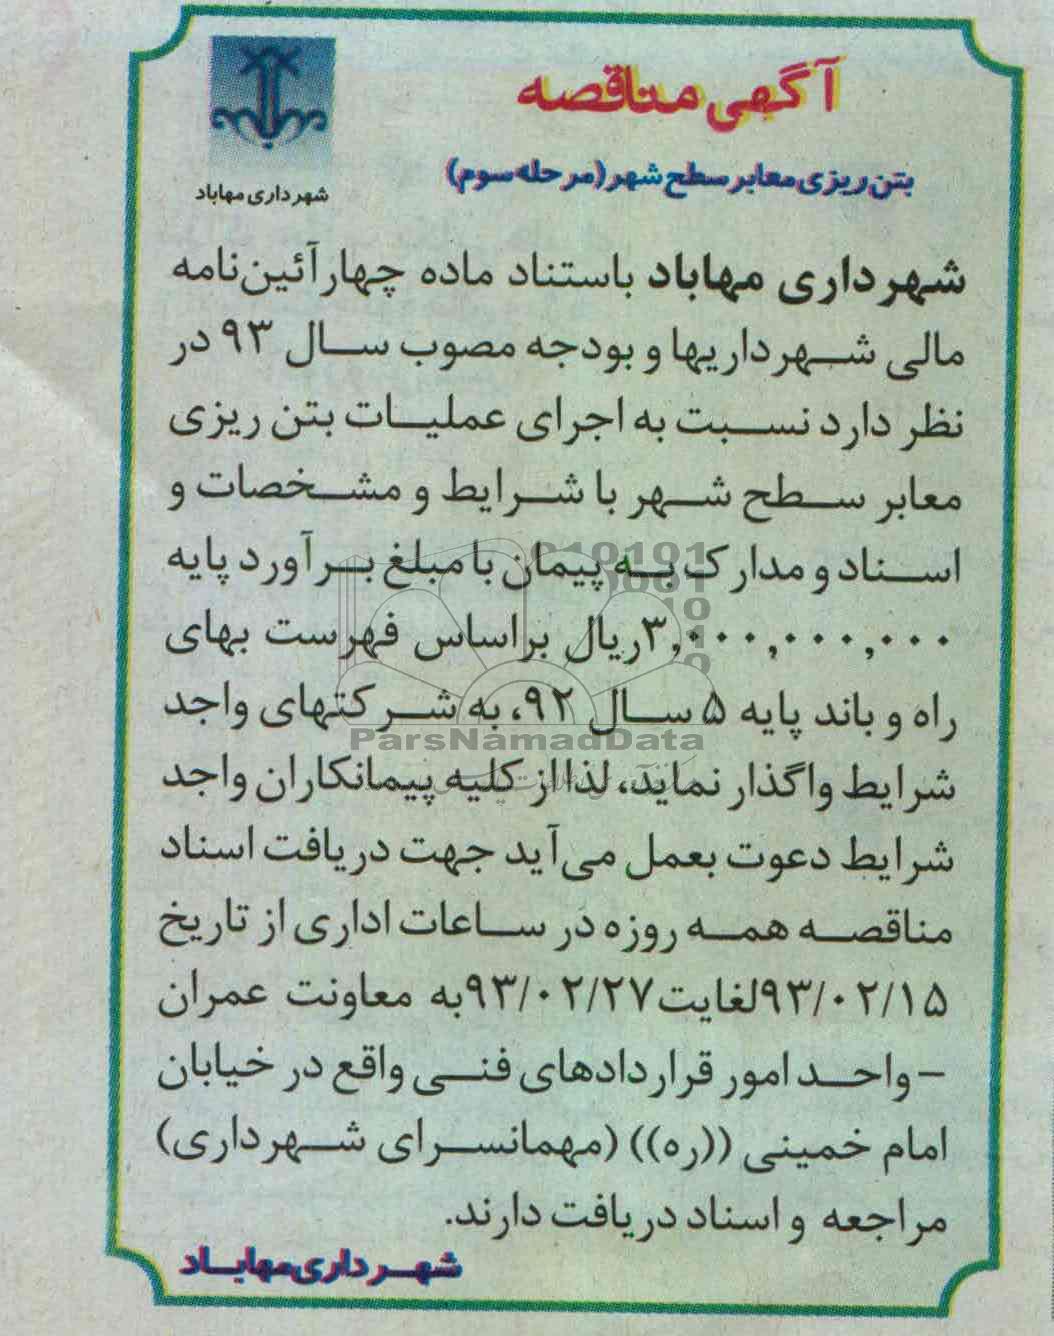 آگهی مناقصه
بتن ریزی معابر سطح شهر (مرحله سوم)
شهرداری مهاباد
شهرداری مهاباد باستناد ماده چهارآئین‌نامه
مالی شهرداریها و بودجه مصوب سال ۹۳ در
نظر دارد نسبت به اجرای عملیات بتن ریزی
معابر سطح شهر با شرایط و مشخصات و
اسناد و مدارک به پیمان با مبلغ برآورد پایه
۳,۰۰۰,۰۰۰,۰۰۰ریال براساس فهرست بهای
راه و باند پایه ۵ سال ۹۲، به شرکتهای واجد
شرایط واگذار نماید، لذا از کلیه پیمانکاران واجد
شرایط دعوت بعمل می‌آید جهت دریافت اسناد
مناقصه همه روزه در ساعات اداری از تاریخ
۹۳/۰۲/۱۵لغایت۹۳/۰۲/۲۷به معاونت عمران
-واحد امور قراردادهای فنی واقع در خیابان
امام خمینی ((ره)) (مهمانسرای شهرداری)
مراجعه و اسناد دریافت دارند.
شهرداری مهاباد
ParsNamadData